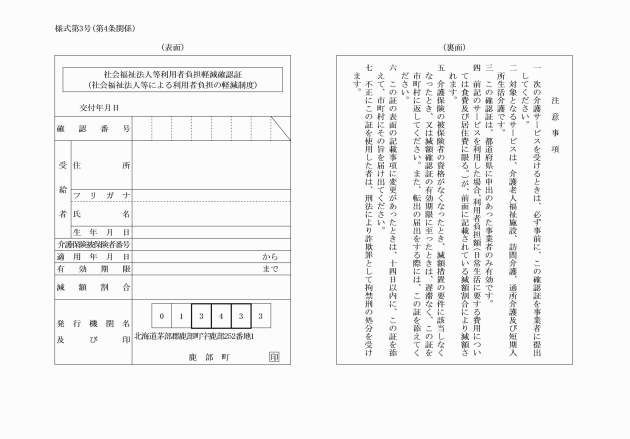 様式第3号(第4条関係)
(表面)
社会福祉法人等利用者負担軽減確認証
(社会福祉法人等による利用者負担の軽減制度)
交付年月日
確認番号
受給者
住所
フリガナ
氏名
生年月日
介護保険被保険者番号
適用年月日 から
有効期限 まで
減額割合
発行機関名
及び印
0 1 3 4 3 3
北海道茅部郡鹿部町字鹿部252番地1
鹿部町 印
(裏面)
注意事項
一 次の介護サービスを受けるときは、必ず事前に、この確認証を事業者に提出
してください。
二 対象となるサービスは、介護老人福祉施設、訪問介護、通所介護及び短期入
所生活介護です。
三 この確認証は、都道府県に申出のあった事業者のみ有効です。
四 前記のサービスを利用した場合、利用者負担額(日常生活に要する費用につい
ては食費及び居住費に限る。)が、前面に記載されている減額割合により減額さ
れます。
五 介護保険の被保険者の資格がなくなったとき、減額措置の要件に該当しなく
なったとき、又は減額確認証の有効期限に至ったときは、遅滞なく、この証を
市町村に返してください。また、転出の届出をする際には、この証を添えてく
ださい。
六 この証の表面の記載事項に変更があったときは、十四日以内に、この証を添
えて、市町村にその旨を届け出てください。
七 不正にこの証を使用した者は、刑法により詐欺罪として拘禁刑の処分を受け
ます。